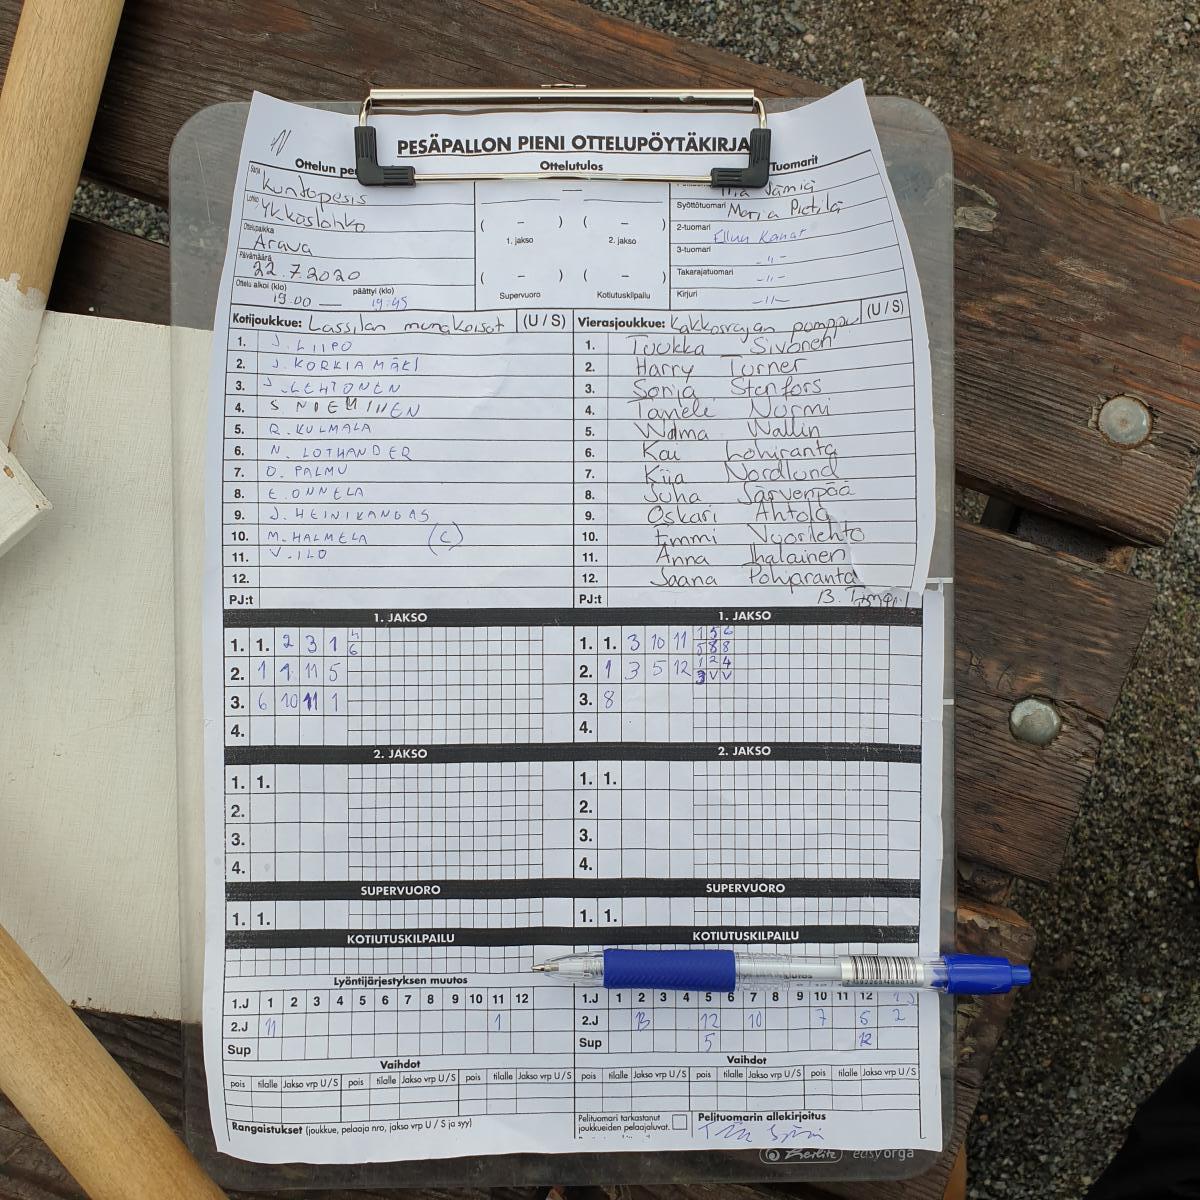 PESÄPALLON PIENI OTTELUPÖYTÄKIRJA
Ottelun Ottelutulos Tuomarit
Sarja Kuntopesis
Lohko Ykköslohko
Ottelupaikka Arava
Päivämäärä 22.7.2020
Ottelu alkoi (klo) päättyi (klo)
19.00 — 19:45
( – ) ( – )
1. jakso 2. jakso
( – ) ( – )
Supervuoro Kotiutuskilpailu
Syöttötuomari Maria Pietilä
2-tuomari Ellun Kanat
3-tuomari -11-
Takarajatuomari -11-
Kirjuri -11-
Kotijoukkue: Lassilan munakoisot (U / S)
1. J. LIIPO
2. J. KORKIAMÄKI
3. J. LEHTONEN
4. S. NIEMINEN
5. R. KULMALA
6. N. LOTHANDER
7. O. PALMU
8. E. ONNELA
9. J. HEINIKANGAS
10. M. HALMELA (C)
11. V. ILO
12.
PJ:t
Vierasjoukkue: Kakkosrajan pumppu (U / S)
1. Tuukka Sivonen
2. Harry Turner
3. Sonja Stenfors
4. Taneli Nurmi
5. Wilma Wallin
6. Kai Lohiranta
7. Kiia Nordlund
8. Juha Järvenpää
9. Oskari Ahtola
10. Emmi Vuorilehto
11. Anna Ihalainen
12. Saana Pohjaranta
PJ:t 13.
1. JAKSO 1. JAKSO
1. 1. 2 3 1 4 6
2. 1 1 11 5
3. 6 10 11 1
4.
1. 1. 3 10 11 1 5 6 5 8 8
2. 1 3 5 12 1 2 4 3 V V
3. 8
4.
2. JAKSO 2. JAKSO
1. 1. 1. 1.
2. 2.
3. 3.
4. 4.
SUPERVUORO SUPERVUORO
1. 1. 1. 1.
KOTIUTUSKILPAILU KOTIUTUSKILPAILU
Lyöntijärjestyksen muutos
1.J 1 2 3 4 5 6 7 8 9 10 11 12
2.J 11 1
Sup
1.J 1 2 3 4 5 6 7 8 9 10 11 12 13
2.J 13 12 10 7 5 2
Sup 5 12
Vaihdot Vaihdot
pois tilalle Jakso vrp U / S pois tilalle Jakso vrp U / S pois tilalle Jakso vrp U / S
pois tilalle Jakso vrp U / S pois tilalle Jakso vrp U / S pois tilalle Jakso vrp U / S
Rangaistukset (joukkue, pelaaja nro, jakso vrp U / S ja syy)
Pelituomari tarkastanut
joukkueiden pelaajaluvat.
Pelituomarin allekirjoitus
Herlitz easyorga